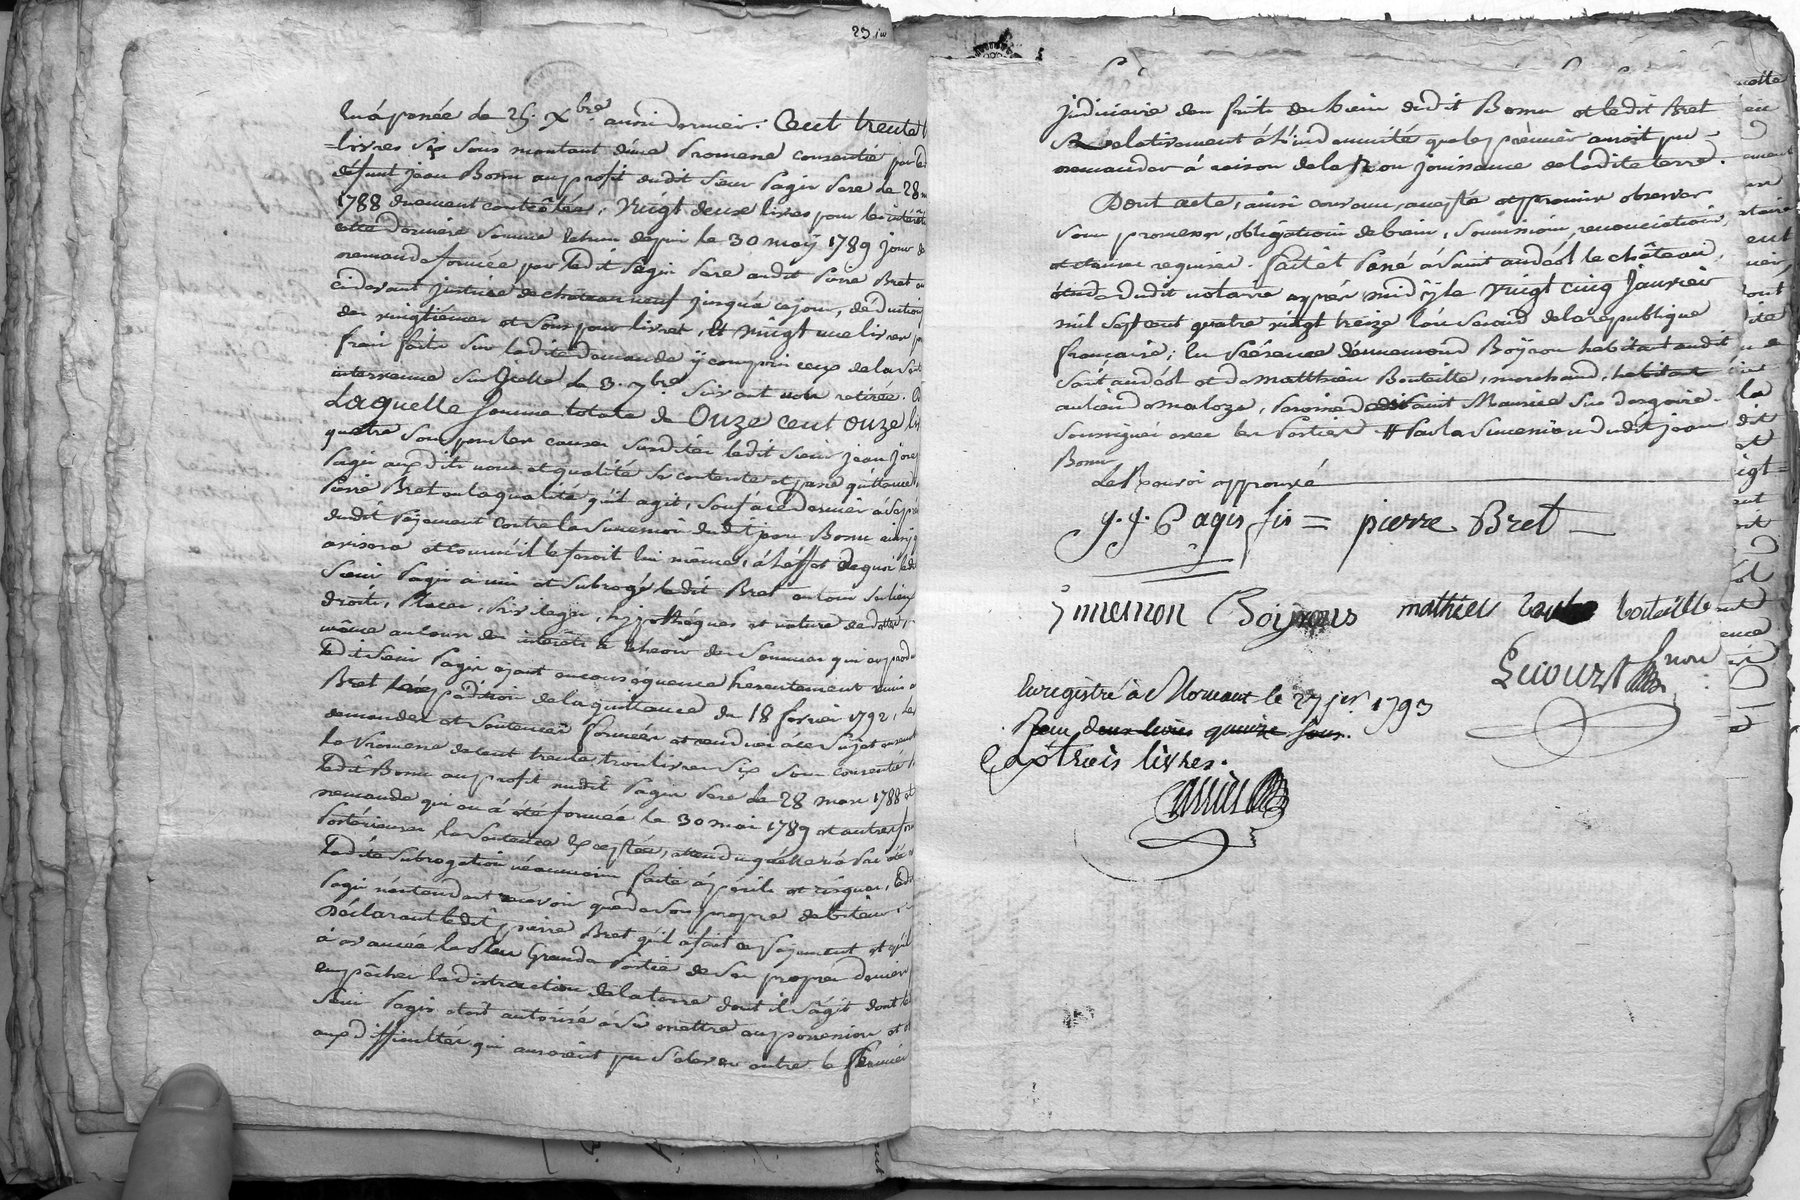 23 jer
aussi dernier. Cent trente
livres six sous montant d'une promesse consentie par le
défunt jean Bonn au profit dudit sieur Pagis Pere le 28
1788 duement contrôlée, Vingt deux livres pour les intérêts
cette derniere somme echus depuis le 30 may 1789 jour de
demande formée par ledit Pagis Pere audit Pierre Bret en
cidevant justice de chateauneuf jusqu'a ce jour, déduction
des vingtiemes et sous pour livres, et vingt une livres pour
frais faits sur ladite demande ÿ compris ceux de la Sent
intervenue sur Icelle le 3. 7bre suivant retirée.
Laquelle somme totale de Onze cent onze liv
quatre sous pour les causes susdites ledit sieur jean jose
Pagis auxdits noms et qualité se contente et passe quittance
Pierre Bret en la qualité qu'il agit, sauf à ce dernier à
dudit Payement contre la succession dudit jean Bonn ainsi q
avisera et comme il le feroit lui même, à l'éffet de quoi led
sieur Pagis a mis et subrogé ledit Bret en son lieu
droits, places, privileges, hypothéques et nature de dettes,
même au cours des intérêts à echeoir des sommes qui en prod
ledit Sieur Pagis ayant en conséquence presentement remis a
Bret l'expédition de la quittance du 18 fevrier 1792, les
demandes et sentences formées et rendues à ce sujet ensemble
la Promesse de cent trente trois livres six sous consentie
ledit Bonn au profit dudit Pagis Pere le 28 mars 1788 et
demande qui en a été formée le 30 mai 1789 et autres
Postérieures la Sentence Exceptée, attendu qu'elle n'a Pas été
ladite subrogation néanmoins faite à périls et risques, ledit
Pagis n'entendant avoir que de son propre débiteur,
Déclarant ledit pierre Bret qu'il a fait ce Payement et qu'il
à avancée la Plus Grande Partie de ses propres deniers
empêcher la distraction de la terre dont il s'agit dont le
sieur Pagis étoit autorisé à se mettre en possession et
aux difficultés qui auroient pu s'elever entre le fermier
judiciaire des fruits des biens dudit Bonn et ledit Bret
Relativement à l'indemnité que le premier auroit pu
demander à raison de la Non jouissance de ladite terre.
Dont acte, ainsi convenu, accepté et promis observer
sous promesses, obligations de biens, soumissions, renonciations,
et clauses requises. fait et Passé à Saint andéol le château,
étude dudit notaire après midÿ le vingt cinq Janvier
mil sept cent quatre vingt treize l'an second de la republique
française; En Présence de Boÿron habitant audit
Saint andéol et de Matthieu Bouteille, marchand, habitant
au lieu de maloze, Paroisse de Saint Maurice sur dargoire.
Soussignés avec les Parties # Pas la succession dudit jean
Bonn
Le Renvoi approuvé
J. J. Pagis fis = pierre Bret
Boiÿrons mathieu bouteille
Lecourt
Enregistré à Mornant le 27 jer 1793
Reçu deux livres quinze sous.
trois livres.